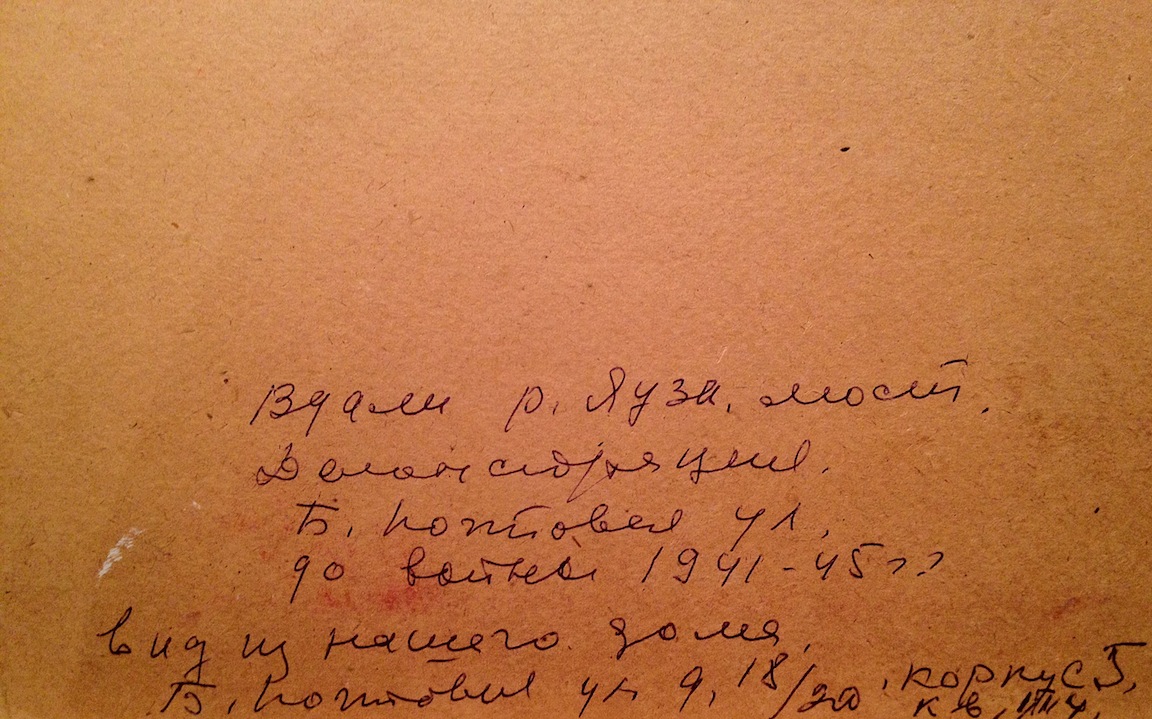 Вдали р. Яуза, мост.
Демонстрация.
Б. Почтовая ул.
до войны 1941-45 гг
вид из нашего дома,
Б. Почтовая ул. д, 18/20, корпус 5,
кв,